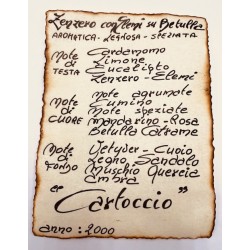 Zenzero con Elemi su Betulla
AROMATICA - LEGNOSA - SPEZIATA
Note di TESTA
Cardamomo
Limone
Eucalipto
Zenzero - Elemi
Note di CUORE
Note agrumate
Cumino
Note speziate
Mandarino - Rosa
Betulla Catrame
Note di FONDO
Vetyder - Cuoio
Legno Sandalo
Muschio Quercia
Ambra
“Cartoccio”
anno: 2000